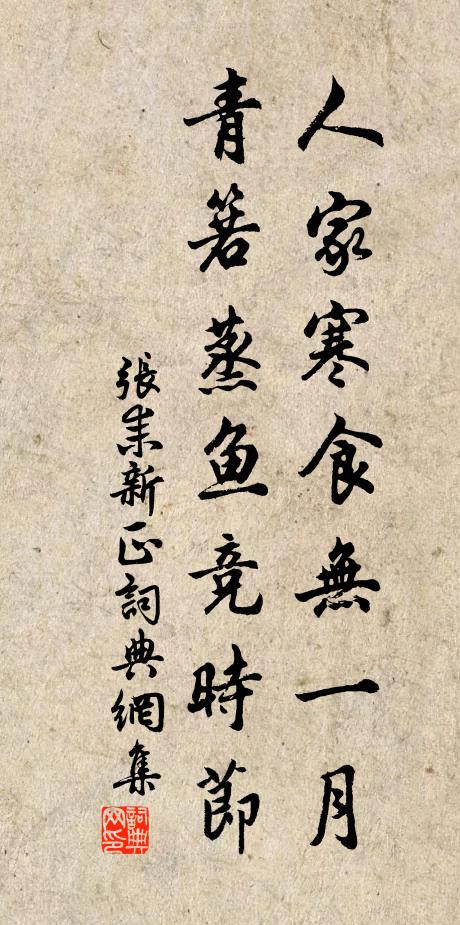 人家寒食無一月
青箬蒸魚竞時節
張耒新正詞典網集
詞典網印